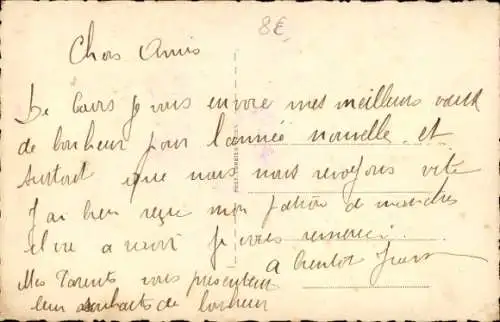 8€
Chers Amis
De Caurs je vous envoie mes meilleurs vœux
de bonheur pour l'année nouvelle et
surtout que nous nous revoyons vite
J'ai bien reçu mon de
il va a ravir Je vous remercie.
A bientot
Mes Parents vous présentent
leur souhaits de bonheur